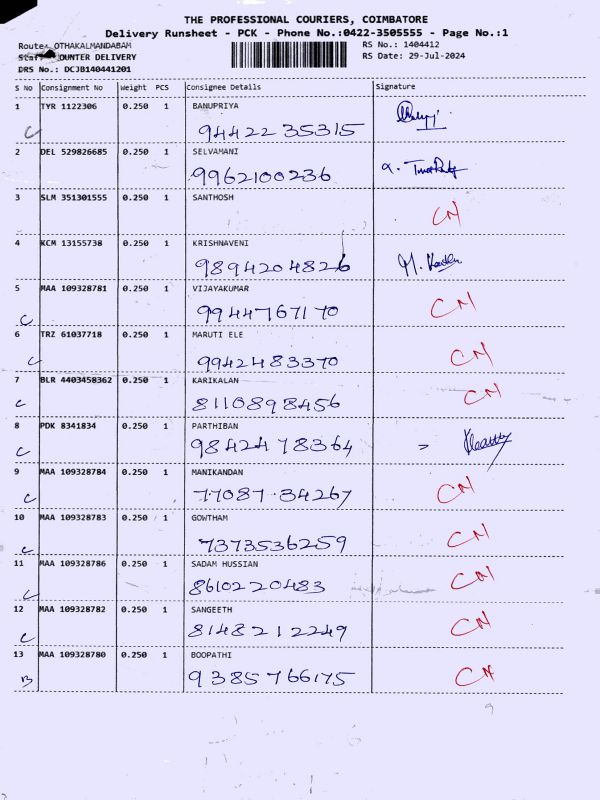 THE PROFESSIONAL COURIERS, COIMBATORE
Delivery Runsheet - PCK - Phone No.:0422-3505555 - Page No.:1
Route: OTHAKALMANDABAM
RS No.: 1404412
Staff: OUNTER DELIVERY
RS Date: 29-Jul-2024
DRS No.: DCJB140441201
S No Consignment No Weight PCS Consignee Details Signature
1 TYR 1122306 0.250 1 BANUPRIYA
C 94422 35315
2 DEL 529826685 0.250 1 SELVAMANI
9962100236
3 SLM 351301555 0.250 1 SANTHOSH
CN
4 KCM 13155738 0.250 1 KRISHNAVENI
9894204826
5 MAA 109328781 0.250 1 VIJAYAKUMAR
C 9944767170 CN
6 TRZ 61037718 0.250 1 MARUTI ELE
C 9942483370 CN
7 BLR 4403458362 0.250 1 KARIKALAN
C 8110898456 CN
8 PDK 8341834 0.250 1 PARTHIBAN
C 9842478364
9 MAA 109328784 0.250 1 MANIKANDAN
C 77087 34267 CN
10 MAA 109328783 0.250 1 GOWTHAM
C 7373536259 CN
11 MAA 109328786 0.250 1 SADAM HUSSIAN
C 8610220483 CN
12 MAA 109328782 0.250 1 SANGEETH
C 8148212249 CN
13 MAA 109328780 0.250 1 BOOPATHI
B 9385766175 CN